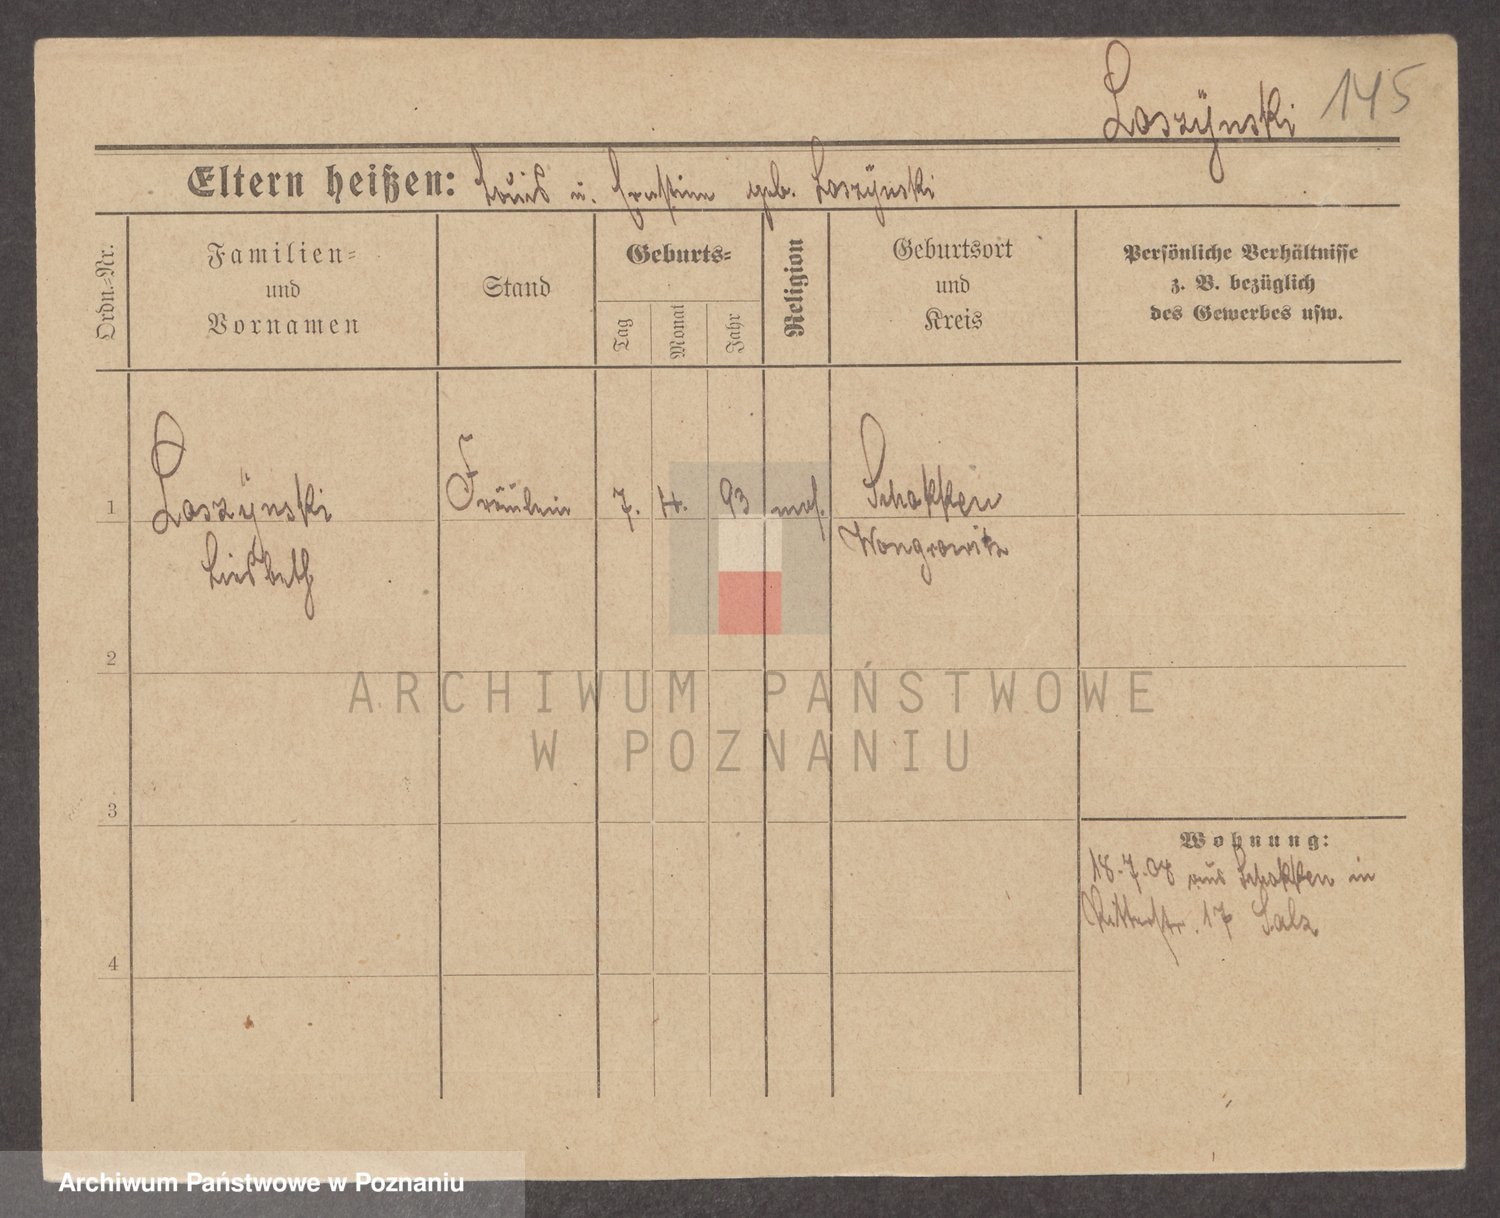 Loszÿnski 145
Eltern heißen: Louis u. Ernstine geb. Loszÿnski
Ordn.-Nr.
Familien-
und
Vornamen
Stand
Geburts-
Tag
Monat
Jahr
Religion
Geburtsort
und
Kreis
Persönliche Verhältnisse
z. B. bezüglich
des Gewerbes usw.
1 Loszÿnski Fräulein 7. 4. 93 mos. Schokken
Liesbeth Wongrowitz
2
ARCHIWUM PAŃSTWOWE
W POZNANIU
3
Wohnung:
18.7.08 aus Schokken in
Ritterstr. 17
4
Archiwum Państwowe w Poznaniu